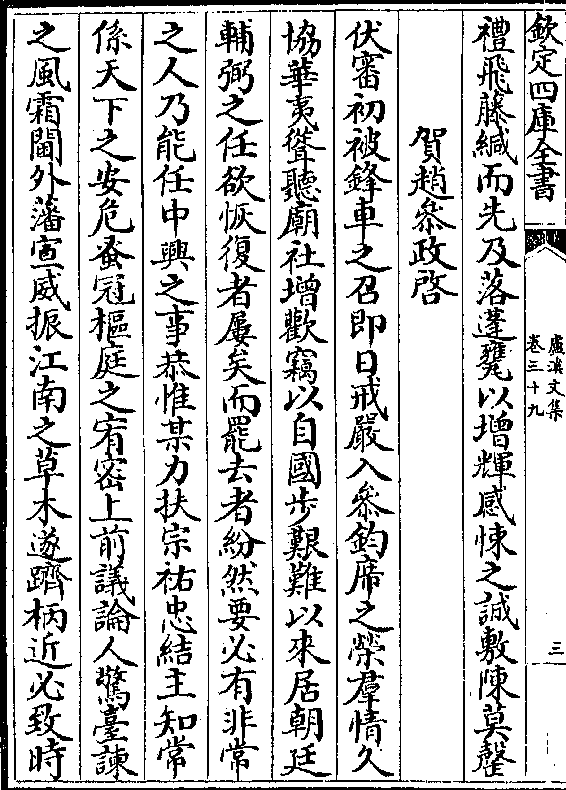 欽定四庫全書
盧溪文集
卷三十九
三
禮飛藤緘而先及落蓬甕以增輝感悚之誠敷陳莫罄
賀趙叅政啓
伏審初被鋒車之召即日戒嚴入叅鈞席之榮羣情久
協華夷聳聽廟社增歡竊以自國步艱難以來居朝廷
輔弼之任欲恢復者屢矣而罷去者紛然要必有非常
之人乃能任中興之事恭惟某力扶宗祐忠結主知常
係天下之安危蚤冠樞庭之宥密上前議論人驚臺諫
之風霜閫外藩宣威振江南之草木遂躋柄近必致時